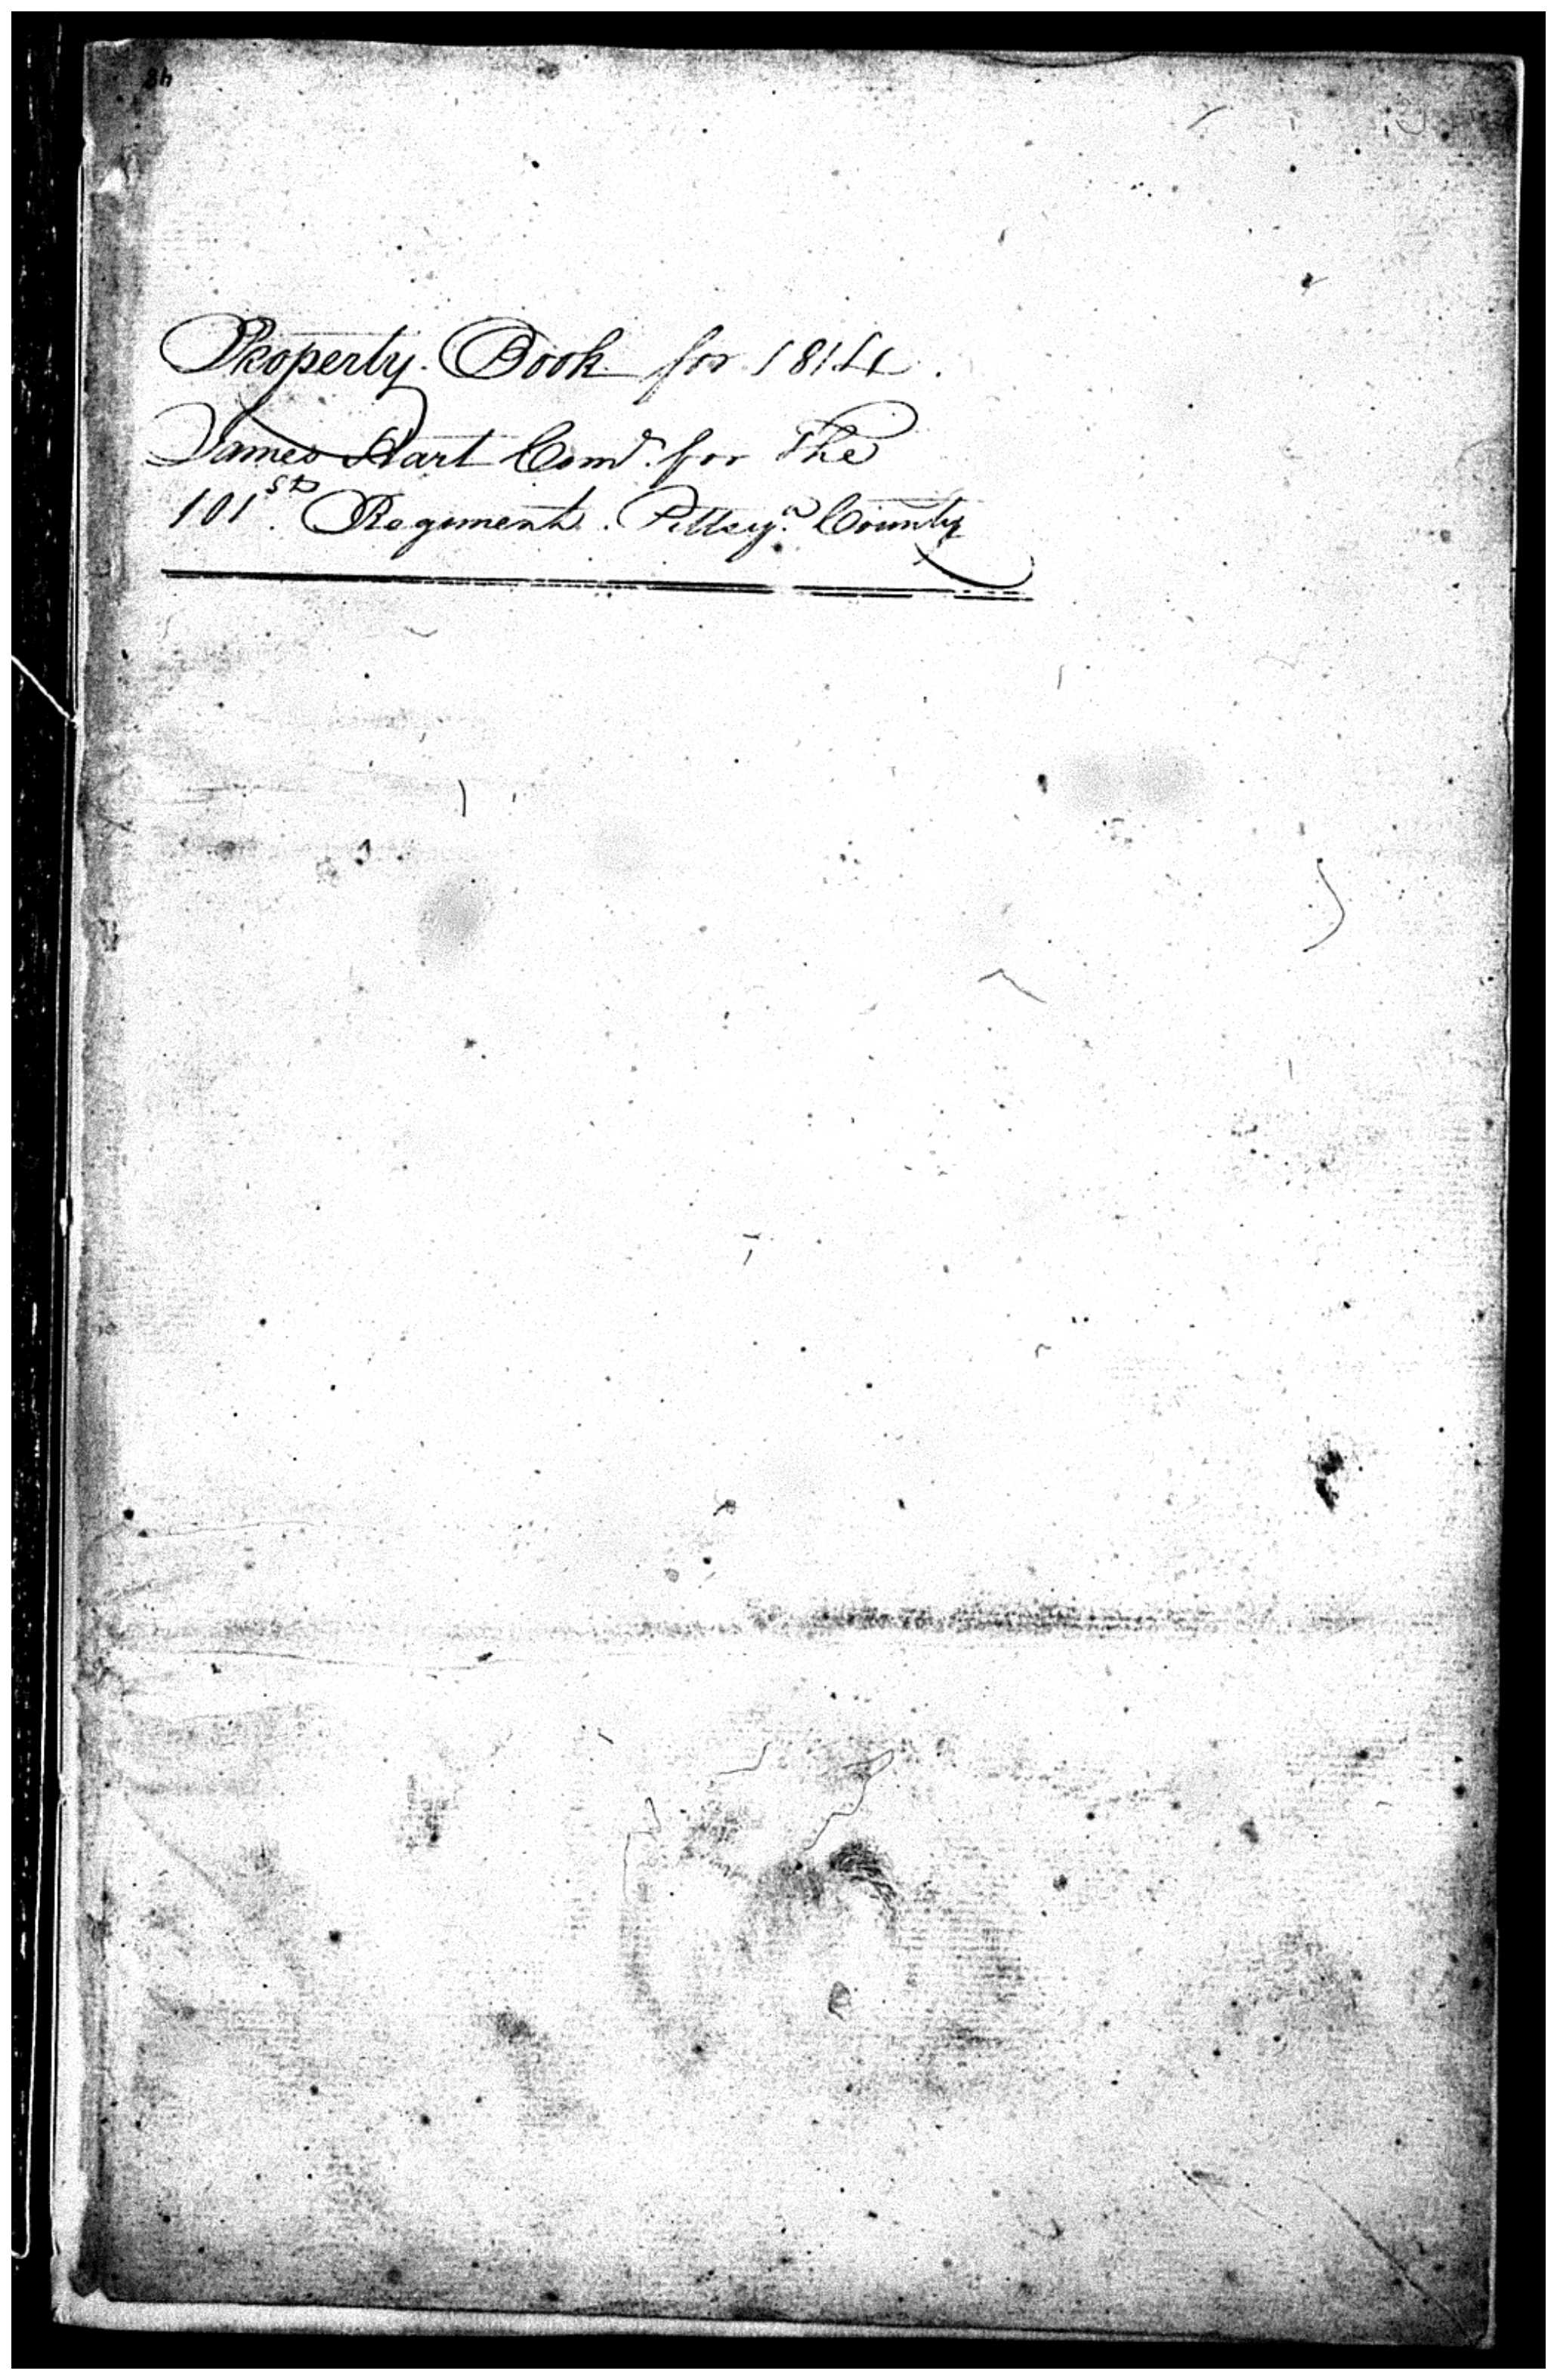 Property Book for 1814.
James Hart Comr. for The
101st. Regiment. Pittsya. County